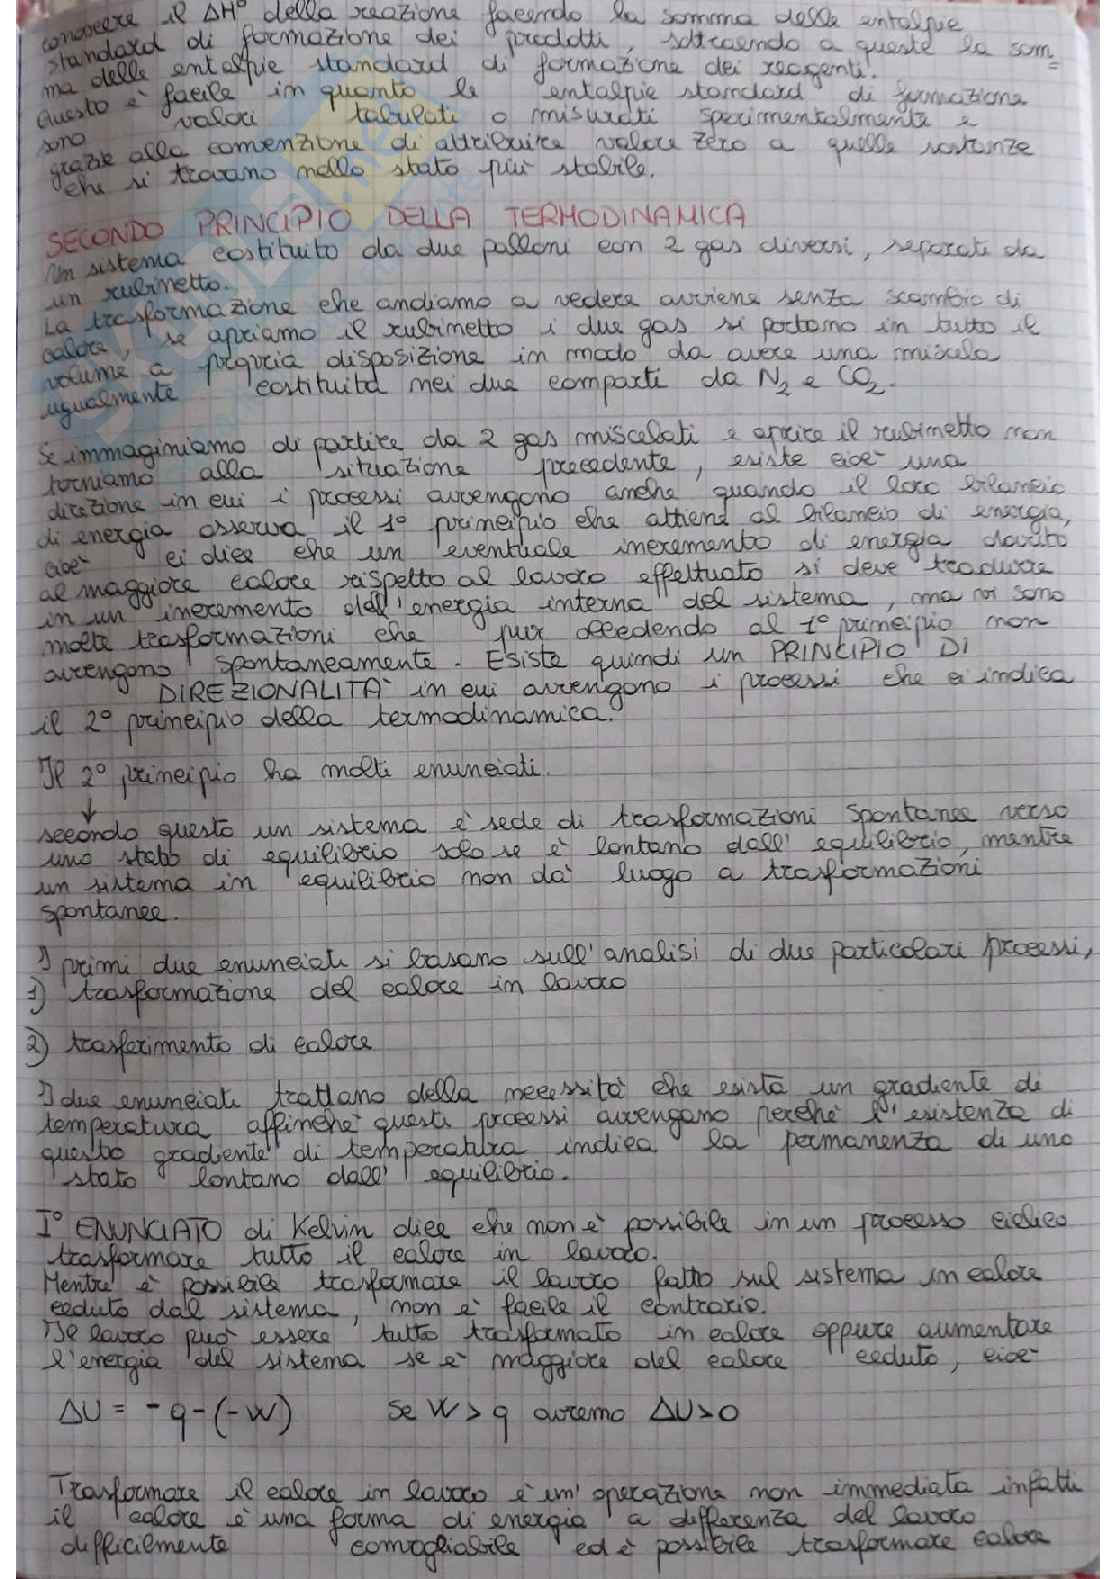 conoscere il ΔH° della reazione facendo la somma delle entalpie
standard di formazione dei prodotti, sottraendo a queste la som=
ma delle entalpie standard di formazione dei reagenti.
Questo è facile in quanto le entalpie standard di formazione
sono valori tabulati o misurati sperimentalmente e
grazie alla convenzione di attribuire valore zero a quelle sostanze
che si trovano nello stato più stabile.
SECONDO PRINCIPIO DELLA TERMODINAMICA
Un sistema costituito da due palloni con 2 gas diversi, separati da
un rubinetto.
La trasformazione che andiamo a vedere avviene senza scambio di
calore, se apriamo il rubinetto i due gas si portano in tutto il
volume a propria disposizione in modo da avere una miscela
ugualmente costituita nei due comparti da N₂ e CO₂.
Se immaginiamo di partire da 2 gas miscelati e aprire il rubinetto non
torniamo alla situazione precedente, esiste cioè una
direzione in cui i processi avvengono anche quando il loro bilancio
di energia osserva il 1° principio che attiene al bilancio di energia,
cioè ci dice che un eventuale incremento di energia dovuto
al maggiore calore rispetto al lavoro effettuato si deve tradurre
in un incremento dell'energia interna del sistema, ma vi sono
molte trasformazioni che pur obbedendo al 1° principio non
avvengono spontaneamente. Esiste quindi un PRINCIPIO DI
DIREZIONALITÀ in cui avvengono i processi che ci indica
il 2° principio della termodinamica.
Il 2° principio ha molti enunciati.
↓
secondo questo un sistema è sede di trasformazioni spontanee verso
uno stato di equilibrio solo se è lontano dall'equilibrio, mentre
un sistema in equilibrio non dà luogo a trasformazioni
spontanee.
I primi due enunciati si basano sull'analisi di due particolari processi,
1) trasformazione del calore in lavoro
2) trasferimento di calore
I due enunciati trattano della necessità che esista un gradiente di
temperatura affinché questi processi avvengano perché l'esistenza di
questo gradiente di temperatura indica la permanenza di uno
stato lontano dall'equilibrio.
I° ENUNCIATO di Kelvin dice che non è possibile in un processo ciclico
trasformare tutto il calore in lavoro.
Mentre è possibile trasformare il lavoro fatto sul sistema in calore
ceduto dal sistema, non è facile il contrario.
Il lavoro può essere tutto trasformato in calore oppure aumentare
l'energia del sistema se è maggiore del calore ceduto, cioè
ΔU = -q-(-W) Se W > q avremo ΔU>0
Trasformare il calore in lavoro è un'operazione non immediata infatti
il calore è una forma di energia a differenza del lavoro
difficilmente convogliabile ed è possibile trasformare calore